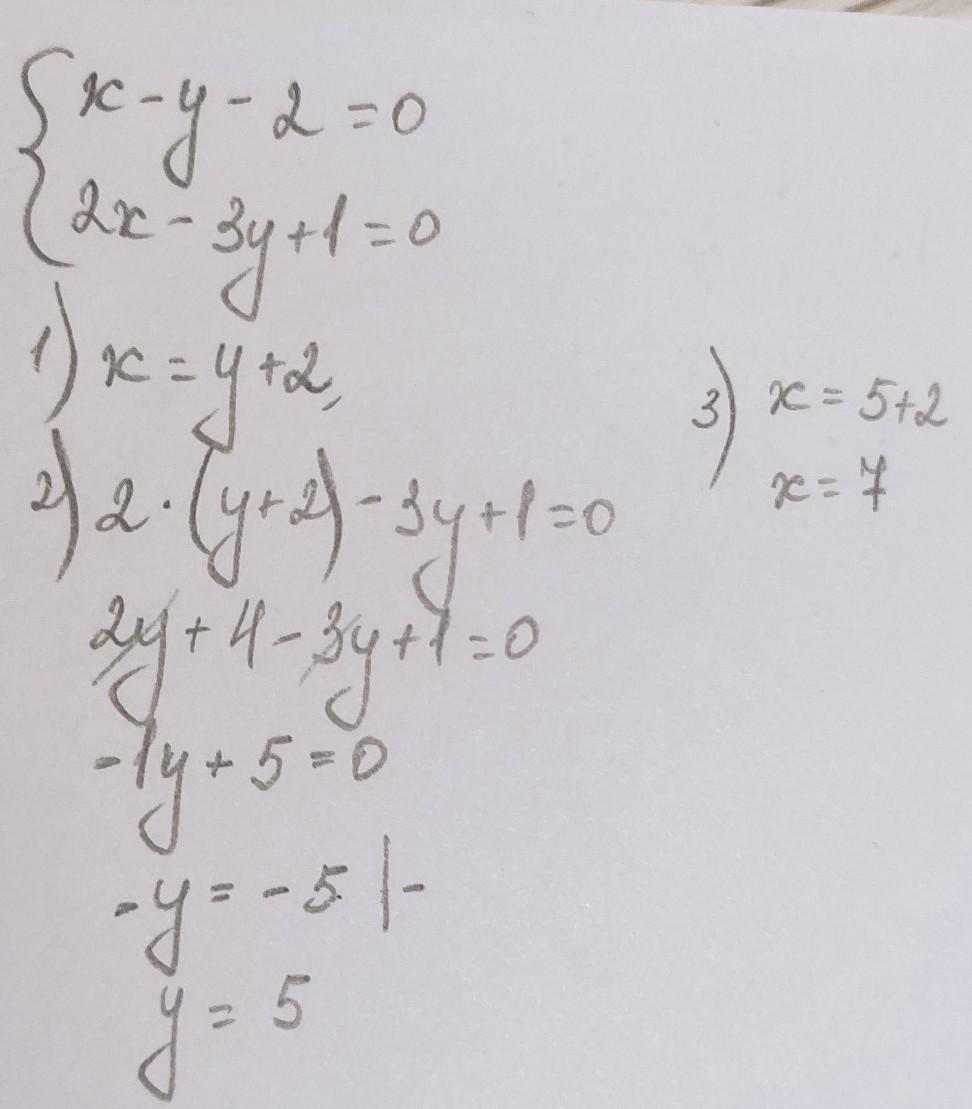 { x - y - 2 = 0
2x - 3y + 1 = 0
1) x = y + 2,
2) 2 · (y + 2) - 3y + 1 = 0
2y + 4 - 3y + 1 = 0
-1y + 5 = 0
-y = -5 | -
y = 5
3) x = 5 + 2
x = 7